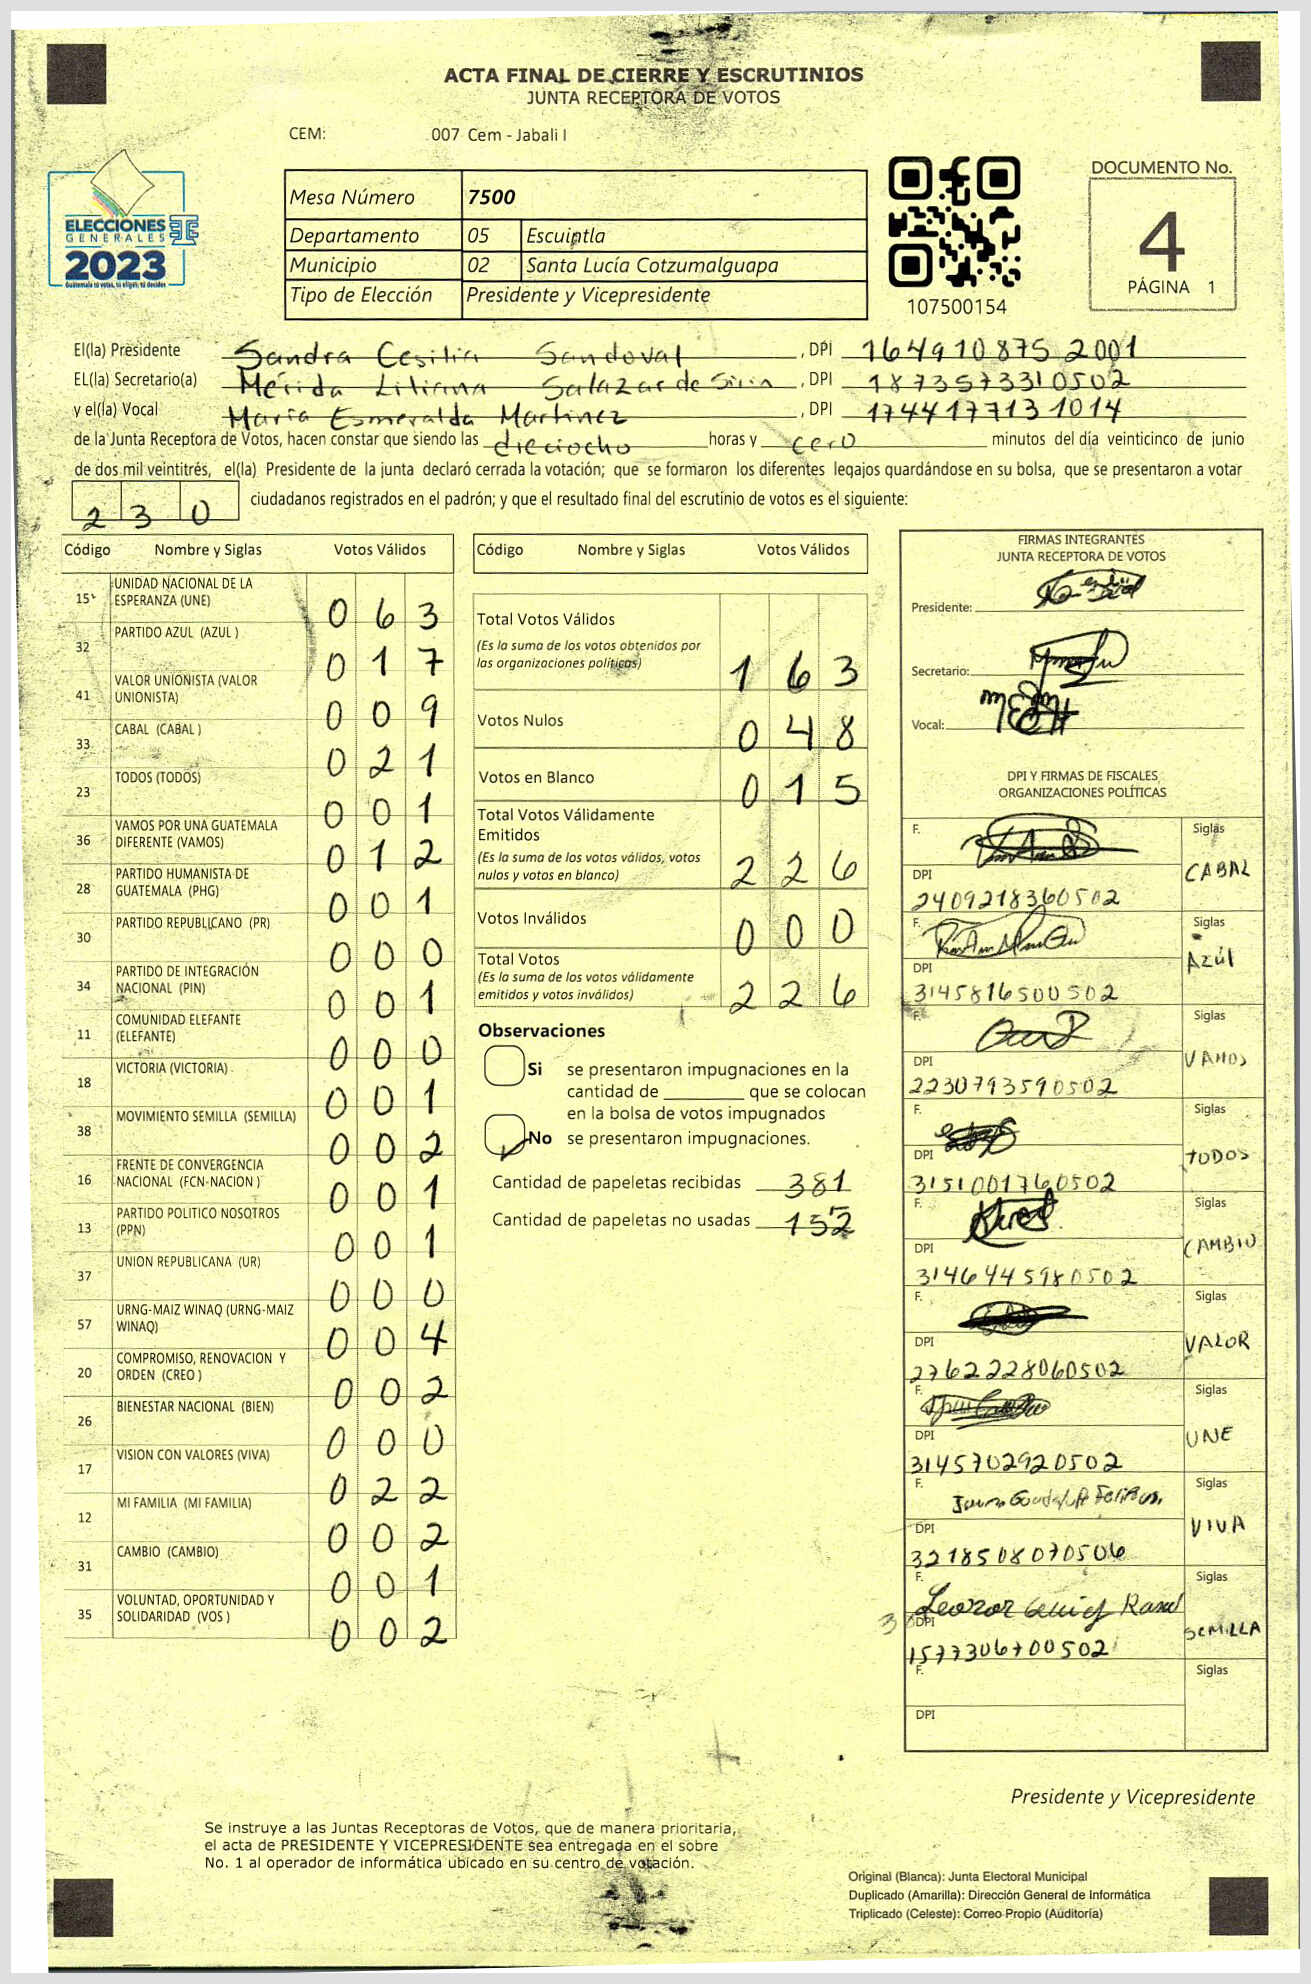 ACTA FINAL DE CIERRE Y ESCRUTINIOS
JUNTA RECEPTORA DE VOTOS
CEM: 007 Cem - Jabali I
ELECCIONES
GENERALES
2023
Guatemala tú votas, tú eliges, tú decides
Mesa Número 7500
Departamento 05 Escuintla
Municipio 02 Santa Lucía Cotzumalguapa
Tipo de Elección Presidente y Vicepresidente
107500154
DOCUMENTO No.
4
PÁGINA 1
El(la) Presidente Sandra Cesilia Sandoval, DPI 1649108752001
EL(la) Secretario(a) Mérida Liliana Salazar de Sirin, DPI 1873573310502
y el(la) Vocal María Esmeralda Martinez, DPI 1744177131014
de la Junta Receptora de Votos, hacen constar que siendo las dieciocho horas y cero minutos del día veinticinco de junio
de dos mil veintitrés, el(la) Presidente de la junta declaró cerrada la votación; que se formaron los diferentes legajos guardándose en su bolsa, que se presentaron a votar
230 ciudadanos registrados en el padrón; y que el resultado final del escrutinio de votos es el siguiente:
Código Nombre y Siglas Votos Válidos
15 UNIDAD NACIONAL DE LA ESPERANZA (UNE) 063
32 PARTIDO AZUL (AZUL ) 017
41 VALOR UNIONISTA (VALOR UNIONISTA) 009
33 CABAL (CABAL ) 021
23 TODOS (TODOS) 001
36 VAMOS POR UNA GUATEMALA DIFERENTE (VAMOS) 012
28 PARTIDO HUMANISTA DE GUATEMALA (PHG) 001
30 PARTIDO REPUBLICANO (PR) 000
34 PARTIDO DE INTEGRACIÓN NACIONAL (PIN) 001
11 COMUNIDAD ELEFANTE (ELEFANTE) 000
18 VICTORIA (VICTORIA) 001
38 MOVIMIENTO SEMILLA (SEMILLA) 002
16 FRENTE DE CONVERGENCIA NACIONAL (FCN-NACION ) 001
13 PARTIDO POLITICO NOSOTROS (PPN) 001
37 UNION REPUBLICANA (UR) 000
57 URNG-MAIZ WINAQ (URNG-MAIZ WINAQ) 004
20 COMPROMISO, RENOVACION Y ORDEN (CREO ) 002
26 BIENESTAR NACIONAL (BIEN) 000
17 VISION CON VALORES (VIVA) 022
12 MI FAMILIA (MI FAMILIA) 002
31 CAMBIO (CAMBIO) 001
35 VOLUNTAD, OPORTUNIDAD Y SOLIDARIDAD (VOS ) 002
Código Nombre y Siglas Votos Válidos
Total Votos Válidos
(Es la suma de los votos obtenidos por las organizaciones políticas) 163
Votos Nulos 048
Votos en Blanco 015
Total Votos Válidamente Emitidos
(Es la suma de los votos válidos, votos nulos y votos en blanco) 226
Votos Inválidos 000
Total Votos
(Es la suma de los votos válidamente emitidos y votos inválidos) 226
Observaciones
Si se presentaron impugnaciones en la
cantidad de ________ que se colocan
en la bolsa de votos impugnados
No se presentaron impugnaciones.
Cantidad de papeletas recibidas 381
Cantidad de papeletas no usadas 152
FIRMAS INTEGRANTES
JUNTA RECEPTORA DE VOTOS
Presidente:
Secretario:
Vocal:
DPI Y FIRMAS DE FISCALES
ORGANIZACIONES POLÍTICAS
F. Siglas
DPI CABAL
2409218360502
F. Siglas
DPI Azúl
3145816500502
F. Siglas
DPI VAMOS
2230793590502
F. Siglas
DPI TODOS
3151001760502
F. Siglas
DPI CAMBIO
3146445980502
F. Siglas
DPI VALOR
2762228060502
F. Siglas
DPI UNE
3145702920502
F. Siglas
DPI VIVA
3218508070506
F. Siglas
DPI SEMILLA
1577306700502
F. Siglas
DPI
Presidente y Vicepresidente
Se instruye a las Juntas Receptoras de Votos, que de manera prioritaria,
el acta de PRESIDENTE Y VICEPRESIDENTE sea entregada en el sobre
No. 1 al operador de informática ubicado en su centro de votación.
Original (Blanca): Junta Electoral Municipal
Duplicado (Amarilla): Dirección General de Informática
Triplicado (Celeste): Correo Propio (Auditoría)